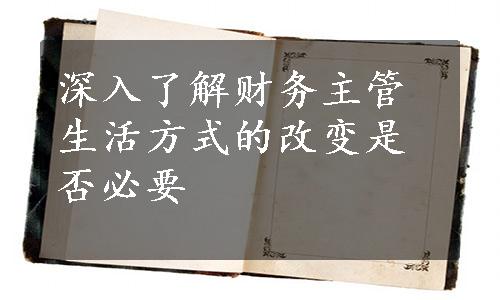 深入了解财务主管
生活方式的改变是
否必要